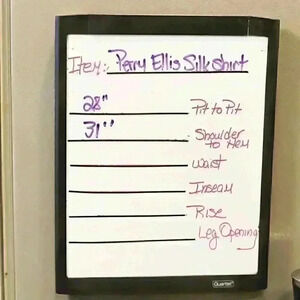 Item: Perry Ellis Silk Shirt
28" Pit to Pit
31'' Shoulder
to Hem
Waist
Inseam
Rise
Leg Opening
Quartet